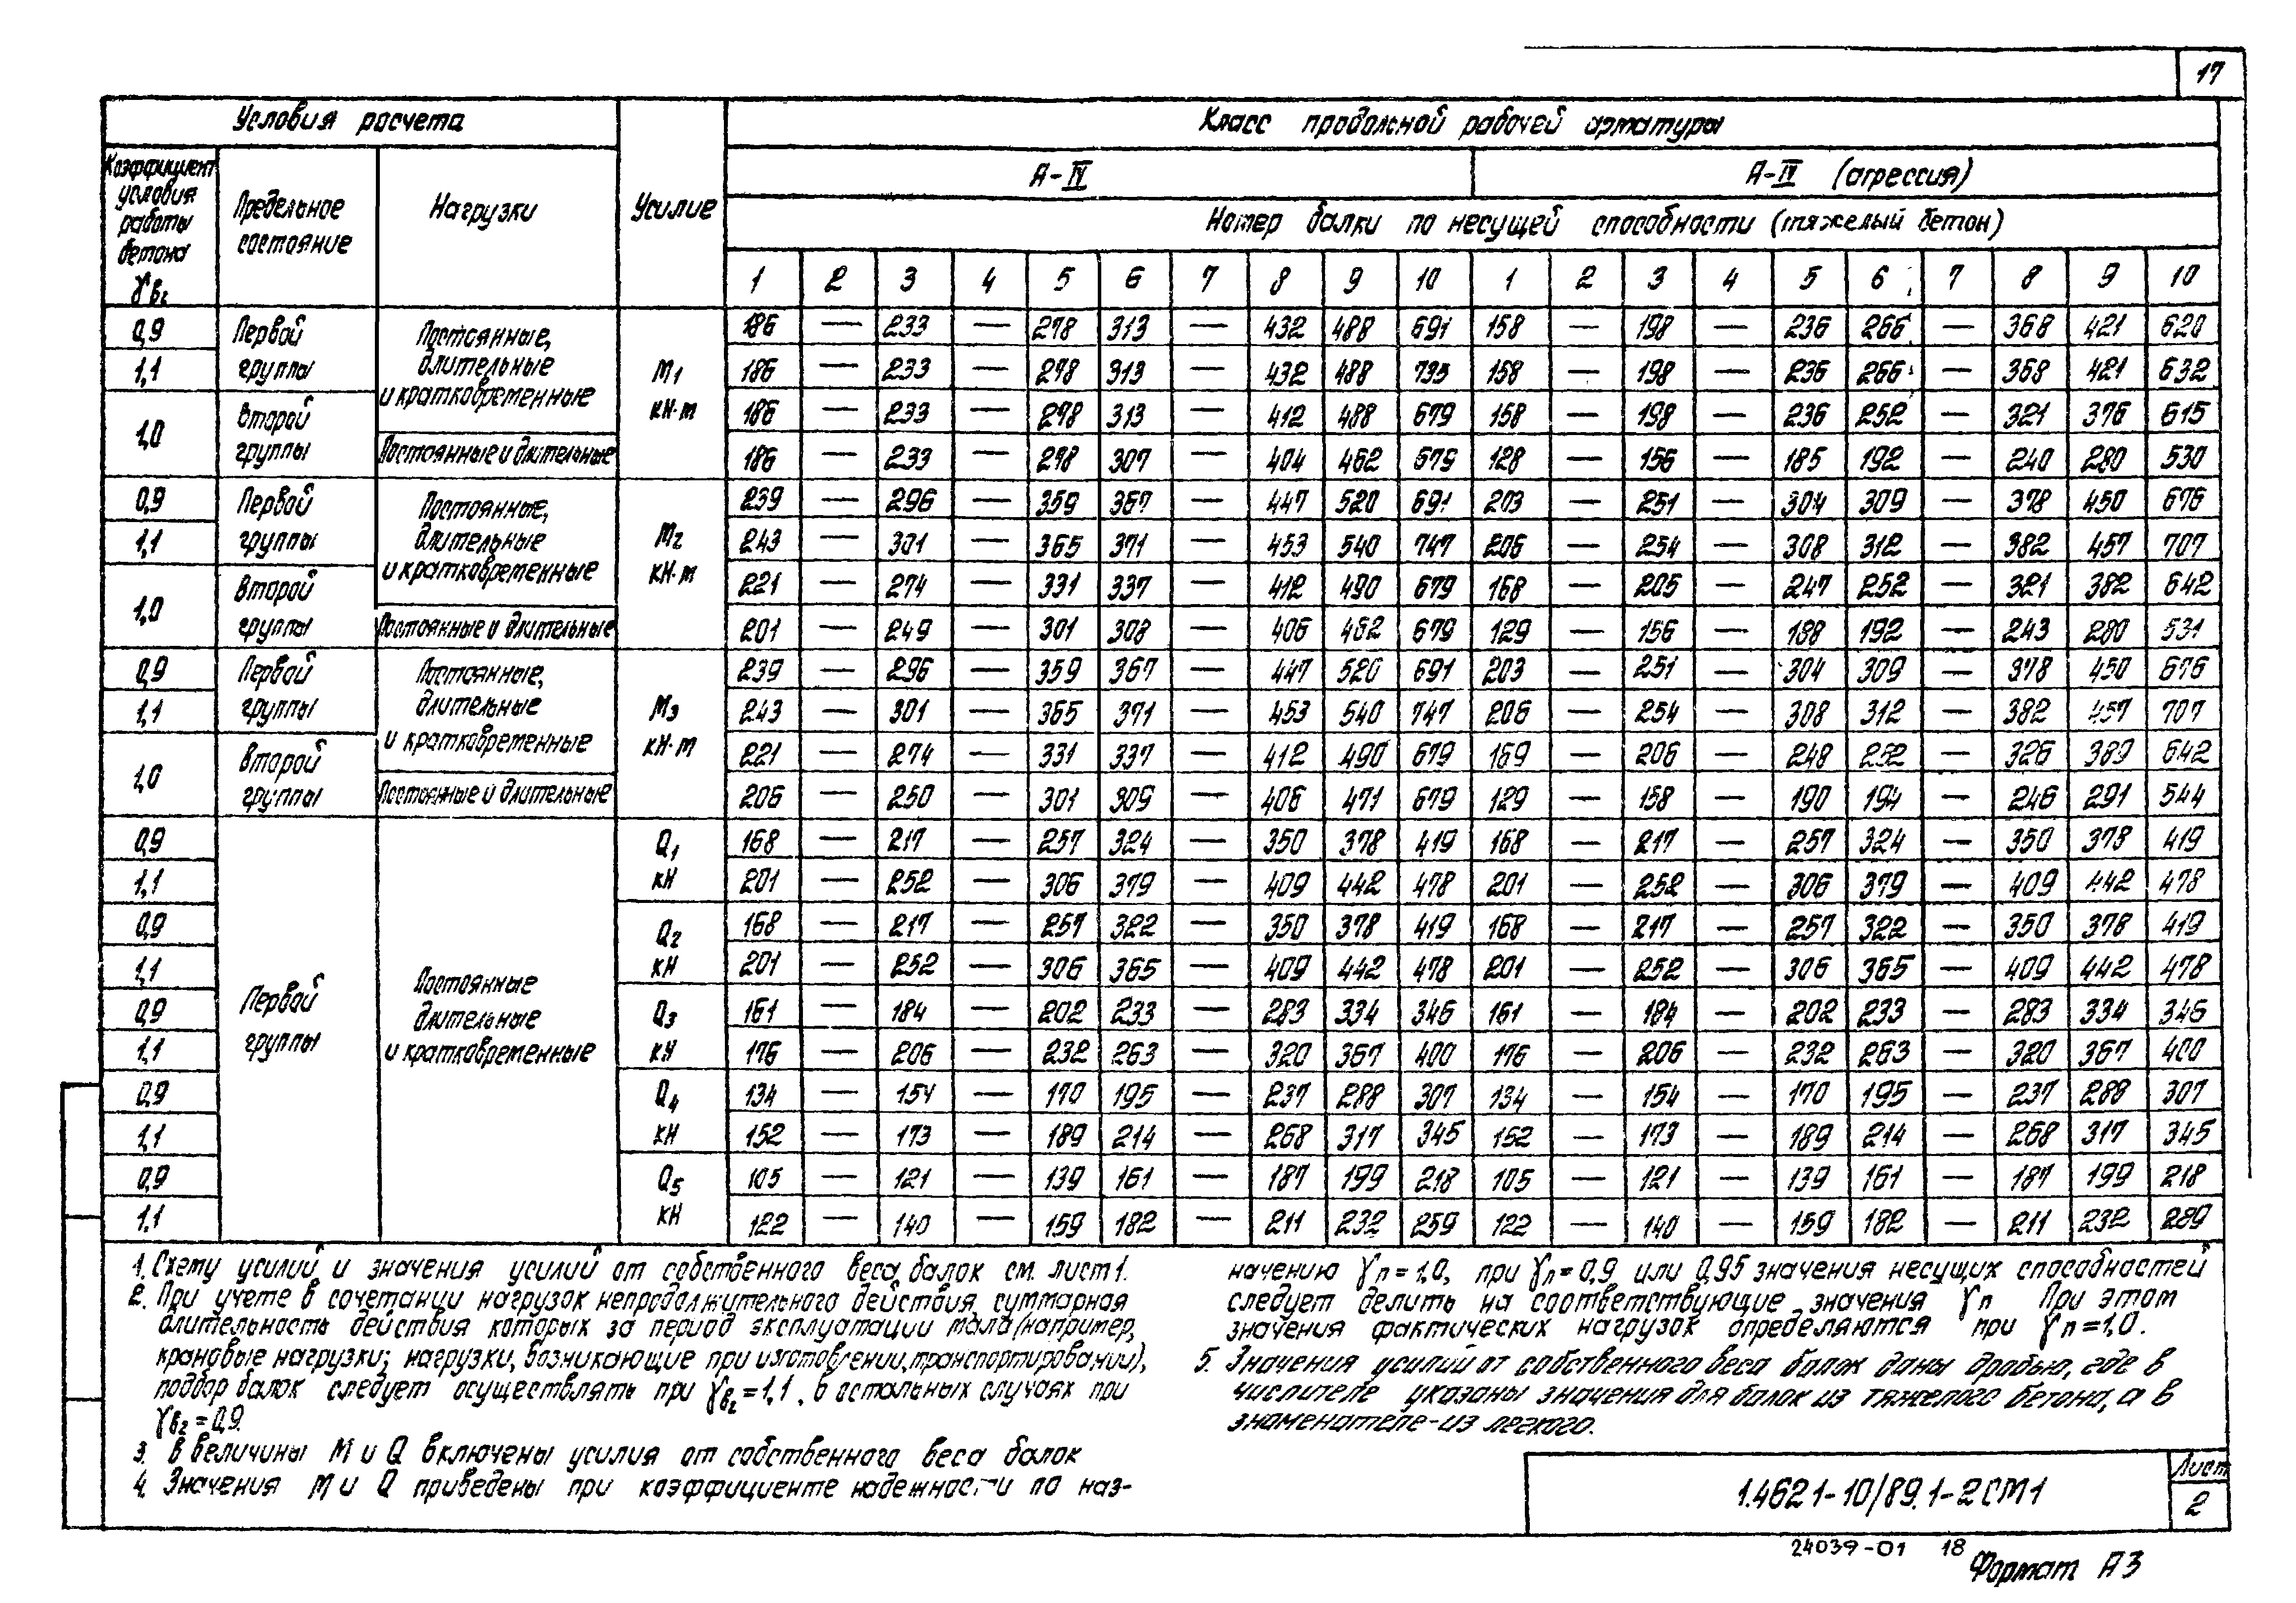 17
Условия расчета
Усилие
Класс продольной рабочей арматуры
Коэффициент условия работы бетона γb2
Предельное состояние
Нагрузки
А-IV
А-IV (агрессия)
Номер балки по несущей способности (тяжелый бетон)
1 2 3 4 5 6 7 8 9 10 1 2 3 4 5 6 7 8 9 10
0,9 Первой группы Постоянные, длительные и кратковременные М1 кН·м 186 — 233 — 278 313 — 432 488 691 158 — 198 — 236 266 — 368 421 620
1,1 186 — 233 — 278 313 — 432 488 735 158 — 198 — 236 266 — 368 421 632
1,0 Второй группы 186 — 233 — 278 313 — 412 488 679 158 — 198 — 236 252 — 321 376 615
Постоянные и длительные 186 — 233 — 278 307 — 404 462 679 128 — 156 — 185 192 — 240 280 530
0,9 Первой группы Постоянные, длительные и кратковременные М2 кН·м 239 — 296 — 359 367 — 447 520 691 203 — 251 — 304 309 — 378 450 676
1,1 243 — 301 — 365 371 — 453 540 747 206 — 254 — 308 312 — 382 457 707
1,0 Второй группы 221 — 274 — 331 337 — 412 490 679 168 — 205 — 247 252 — 321 382 642
Постоянные и длительные 201 — 249 — 301 308 — 406 462 679 129 — 156 — 188 192 — 243 280 531
0,9 Первой группы Постоянные, длительные и кратковременные М3 кН·м 239 — 296 — 359 367 — 447 520 691 203 — 251 — 304 309 — 378 450 676
1,1 243 — 301 — 365 371 — 453 540 747 206 — 254 — 308 312 — 382 457 707
1,0 Второй группы 221 — 274 — 331 337 — 412 490 679 169 — 206 — 248 252 — 326 389 642
Постоянные и длительные 206 — 250 — 301 309 — 406 471 679 129 — 158 — 190 194 — 246 291 544
0,9 Первой группы Постоянные длительные и кратковременные Q1 кН 168 — 217 — 257 324 — 350 378 419 168 — 217 — 257 324 — 350 378 419
1,1 201 — 252 — 306 379 — 409 442 478 201 — 252 — 306 379 — 409 442 478
0,9 Q2 кН 168 — 217 — 257 322 — 350 378 419 168 — 217 — 257 322 — 350 378 419
1,1 201 — 252 — 306 365 — 409 442 478 201 — 252 — 306 365 — 409 442 478
0,9 Q3 кН 161 — 184 — 202 233 — 283 334 346 161 — 184 — 202 233 — 283 334 346
1,1 176 — 206 — 232 263 — 320 367 400 176 — 206 — 232 263 — 320 367 400
0,9 Q4 кН 134 — 154 — 170 195 — 237 288 307 134 — 154 — 170 195 — 237 288 307
1,1 152 — 173 — 189 214 — 268 317 345 152 — 173 — 189 214 — 268 317 345
0,9 Q5 кН 105 — 121 — 139 161 — 187 199 218 105 — 121 — 139 161 — 187 199 218
1,1 122 — 140 — 159 182 — 211 232 259 122 — 140 — 159 182 — 211 232 289
1. Схему усилий и значения усилий от собственного веса балок см. лист 1.
2. При учете в сочетании нагрузок непродолжительного действия, суммарная
длительность действия которых за период эксплуатации мала (например,
крановые нагрузки; нагрузки, возникающие при изготовлении, транспортировании),
подбор балок следует осуществлять при γb2=1,1, в остальных случаях при
γb2=0,9.
3. В величины М и Q включены усилия от собственного веса балок
4. Значения М и Q приведены при коэффициенте надежности по наз-
начению γn=1,0, при γn=0,9 или 0,95 значения несущих способностей
следует делить на соответствующие значения γn При этом
значения фактических нагрузок определяются при γn=1,0.
5. Значения усилий от собственного веса балок даны дробью, где в
числителе указаны значения для балок из тяжелого бетона, а в
знаменателе-из легкого.
1.462.1-10/89.1-2СМ1
Лист
2
24039-01 18
Формат А3